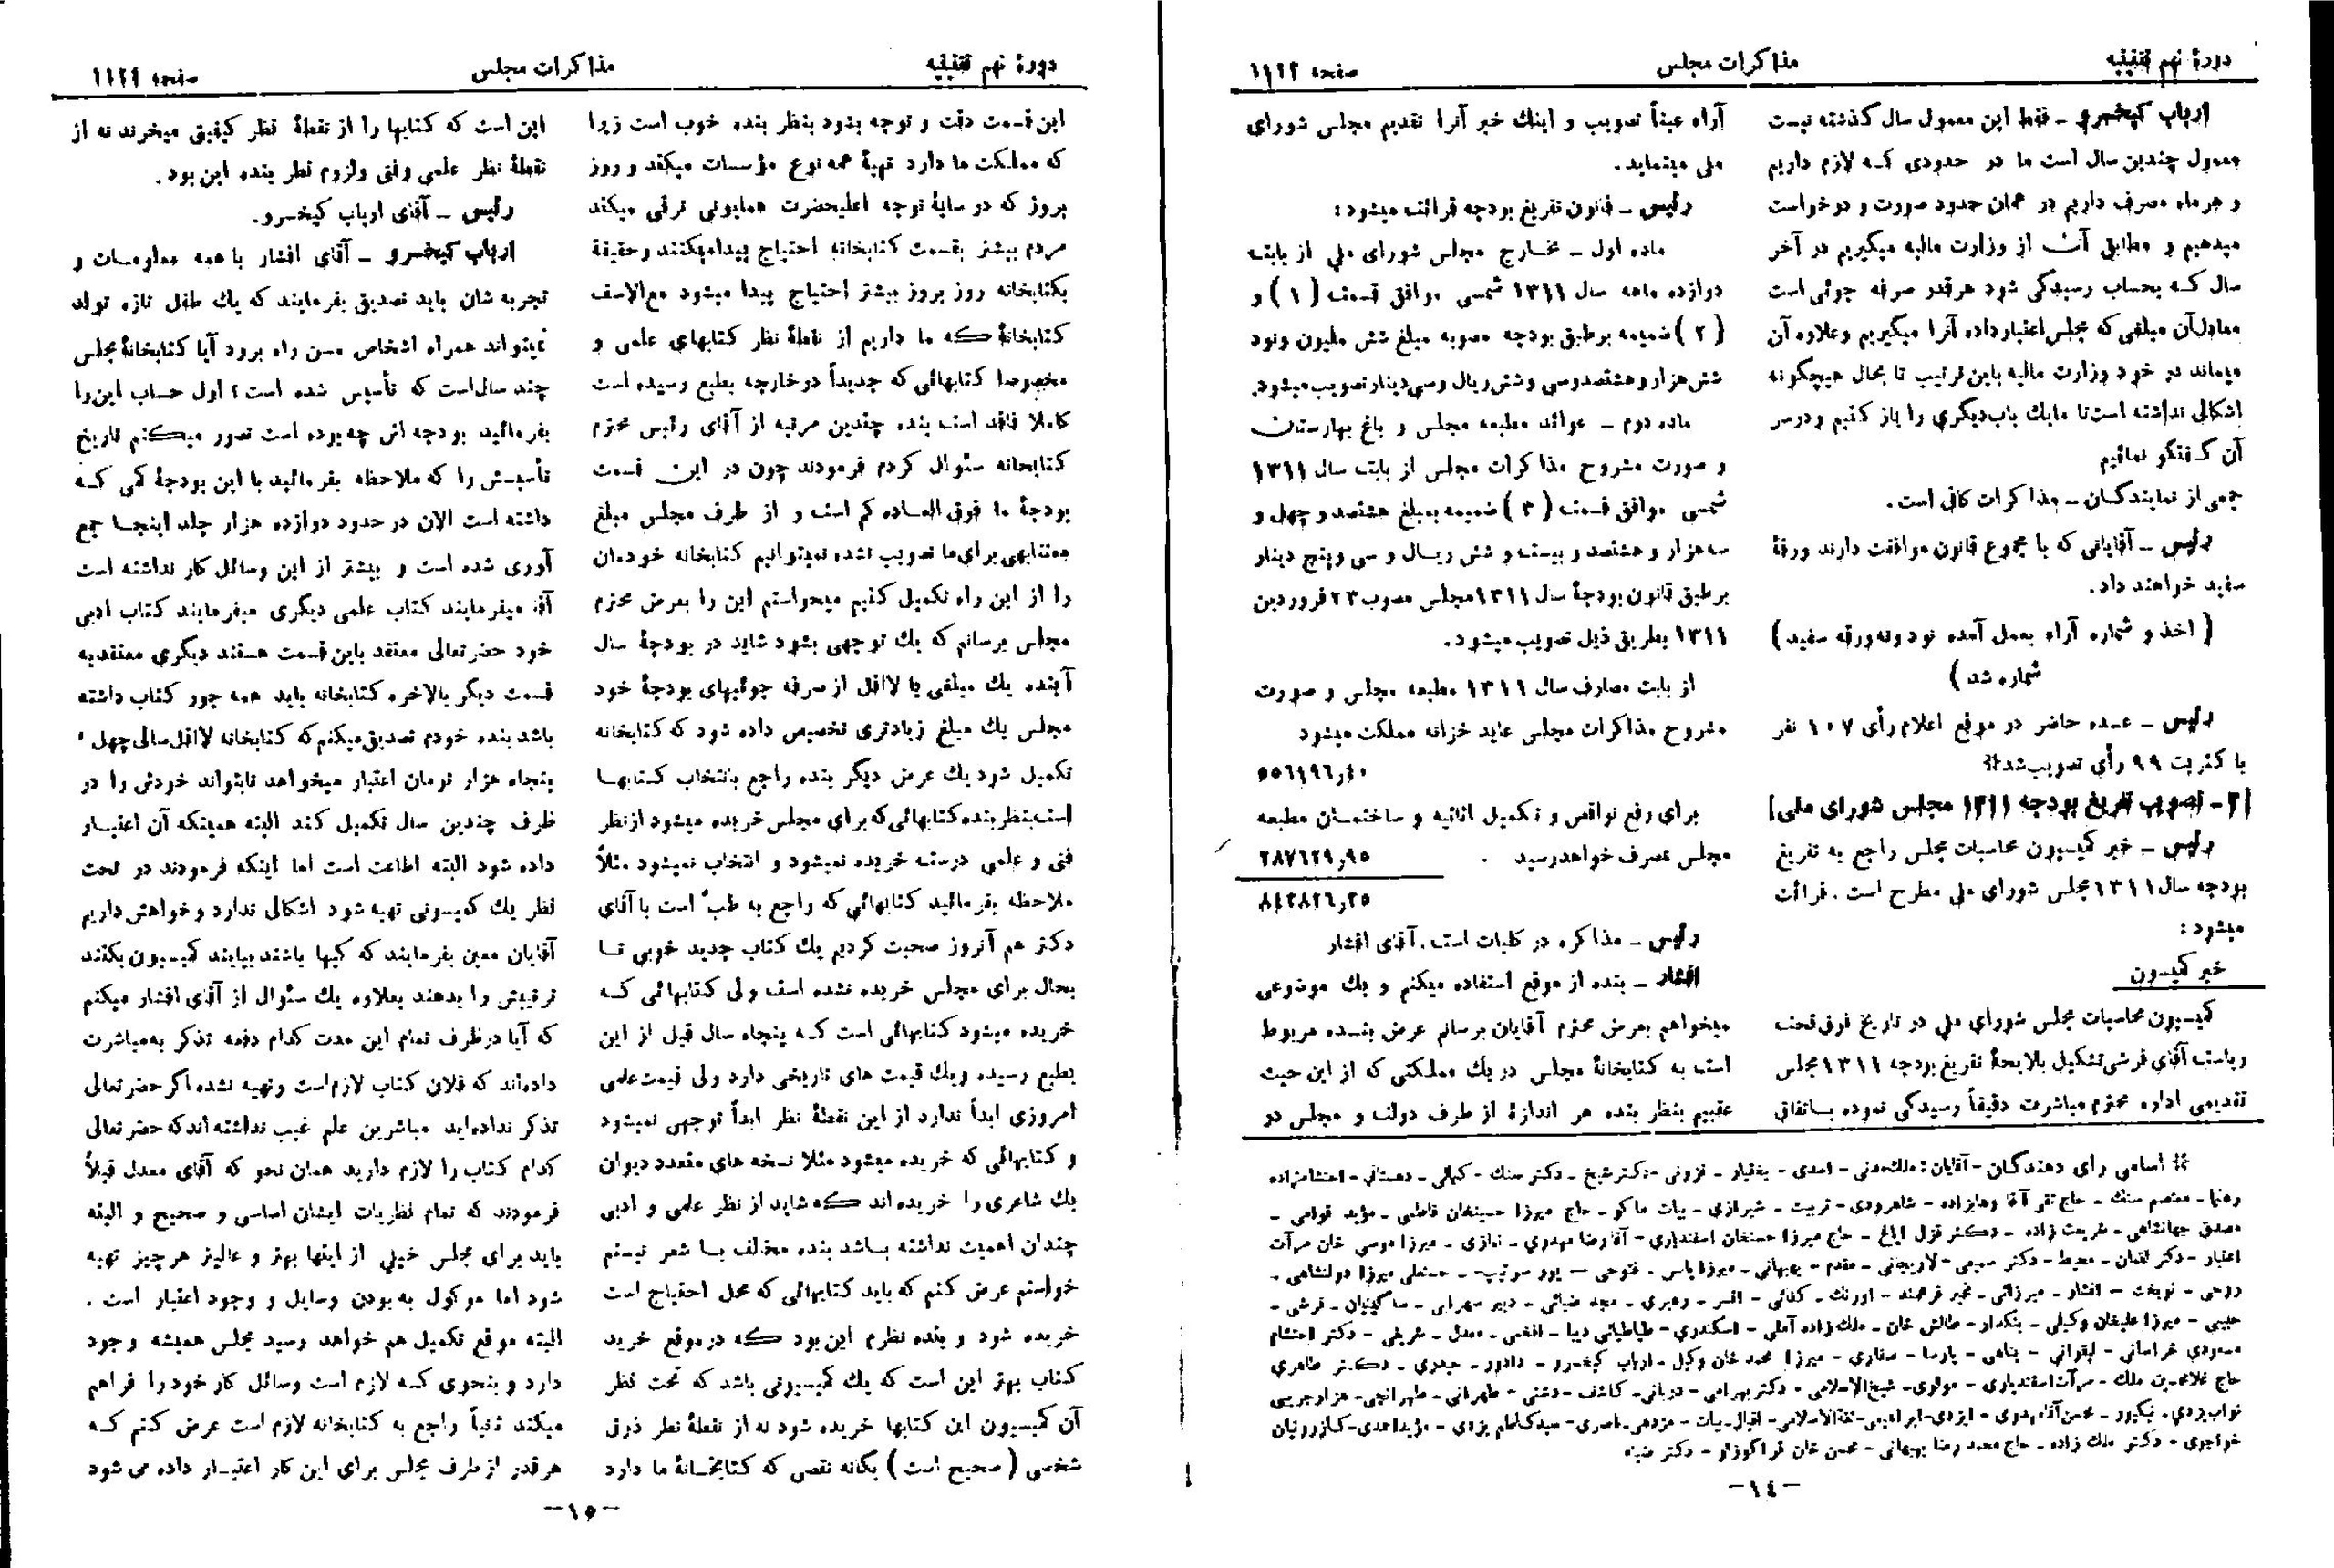 دورهٔ نهم تقنینیه
مذاکرات مجلس
صفحه ۱۱۲۲
ارباب کیخسرو ـ فقط این معمول سال گذشته نیست
معمول چندین سال است ما در حدودی که لازم داریم
و هرماه مصرف داریم در همان حدود صورت و درخواست
میدهیم و مطابق آن از وزارت مالیه میگیریم در آخر
سال که بحساب رسیدگی شود هرقدر صرفه جوئی است
معادل آن مبلغی که مجلس اعتبار داده آنرا میگیریم وعلاوه آن
میماند در خود وزارت مالیه باین ترتیب تا بحال هیچگونه
اشکالی نداشته است تا مایك باب دیگری را باز کنیم ودر سر
آن گفتگو نمائیم
جمعی از نمایندگان ـ مذاکرات کافی است.
رئیس ـ آقایانی که با مجموع قانون موافقت دارند ورقهٔ
سفید خواهند داد.
( اخذ و شماره آراء بعمل آمده نود ونه ورقه سفید )
شماره شد )
رئیس ـ عده حاضر در موقع اعلام رأی ۱۰۷ نفر
با کثریت ۹۹ رأی تصویب شد※
[۳ ـ تصویب تفریغ بودجه ۱۳۱۱ مجلس شورای ملی]
رئیس ـ خبر کمیسیون محاسبات مجلس راجع به تفریغ
بودجه سال ۱۳۱۱ مجلس شورای ملی مطرح است . قرائت
میشود:
خبر کمیسیون
کمیسیون محاسبات مجلس شورای ملی در تاریخ فوق تحت
ریاست آقای قرشی تشکیل بلایحهٔ تفریغ بودجه ۱۳۱۱ مجلس
تقدیمی اداره محترم مباشرت دقیقاً رسیدگی نموده باتفاق
آراء عیناً تصویب و اینك خبر آنرا تقدیم مجلس شورای
ملی مینماید.
رئیس ـ قانون تفریغ بودجه قرائت میشود:
ماده اول ـ مخارج مجلس شورای ملی از بابت
دوازده ماهه سال ۱۳۱۱ شمسی موافق قسمت (۱) و
(۲) ضمیمه بر طبق بودجه مصوبه مبلغ شش ملیون ونود
شش هزار و هشتصد وسی وشش ریال وسی دینار تصویب میشود.
ماده دوم ـ عوائد مطبعه مجلس و باغ بهارستان
و صورت مشروح مذاکرات مجلس از بابت سال ۱۳۱۱
شمسی موافق قسمت (۳) ضمیمه بمبلغ هشتصد و چهل و
سه هزار و هشتصد و بیست و شش ریال و سی وپنج دینار
بر طبق قانون بودجهٔ سال ۱۳۱۱ مجلس مصوب ۲۳ فروردین
۱۳۱۱ بطریق ذیل تصویب میشود.
از بابت مصارف سال ۱۳۱۱ مطبعه مجلس و صورت
مشروح مذاکرات مجلس عاید خزانه مملکت میشود
۵۵٦۱۹٦٫٤۰
برای رفع نواقص و تکمیل اثاثیه و ساختمان مطبعه
مجلس بمصرف خواهد رسید . ۲۸۷٦۲۹٫۹۵
۸٤۳۸۲٦٫۳۵
رئیس ـ مذاکره در کلیات است. آقای افشار
افشار ـ بنده از موقع استفاده میکنم و یك موضوعی
میخواهم بعرض محترم آقایان برسانم عرض بنده مربوط
است به کتابخانهٔ مجلس در یك مملکتی که از این حیث
عقبیم بنظر بنده هر اندازهٔ از طرف دولت و مجلس در
※ اسامی رای دهندگان - آقایان: ملك مدنی - اسدی - بختیار - قزونی - دکتر شیخ - دکتر سنك - کیانی - دهستانی - احتشام زاده
رهنما - معتصم سنك - حاج تقی آقا وهاب زاده - شاهرودی - تربیت - شیرازی - بیات ماکو - حاج میرزا حسینخان فاطمی - مؤید قوامی -
مصدق جهانشاهی - شریعت زاده - دکتر قزل ایاغ - حاج میرزا حسنخان اسفندیاری - آقا رضا مهدوی - نمازی - میرزا موسی خان مرآت
اعتبار - دکتر لقمان - محیط - دکتر سمیعی - لاریجانی - مقدم - بهبهانی - میرزا یانس - فتوحی - پور سرتیپ - حسنعلی میرزا دولتشاهی -
روحی - نوبخت - افشار - میرزائی - مخبر فرهمند - اورنك - کفائی - افسر - رهبری - مجد ضیائی - دبیر سهرابی - ساگینیان - قرشی -
حبیبی - میرزا علیخان وکیلی - بنکدار - طالش خان - ملك زاده آملی - اسکندری - طباطبائی دیبا - افخمی - معدل - شریفی - دکتر احتشام
مسعودی خراسانی - لیقوانی - پناهی - پارسا - صفاری - میرزا محمد خان وکیل - ارباب کیخسرو - دادور - حیدری - دکتر طاهری
حاج غلامحسین ملك - مرآت اسفندیاری - مولوی - شیخ الاسلامی - دکتر بهرامی - دربانی - کاشف - دشتی - طهرانی - طهرانچی - هزارجریبی
نواب یزدی - نیکپور - محسن آقا مهدوی - ایزدی - ابراهیمی - ثقة الاسلامی - اقبال - بیات - مژدهی - ناصری - سید کاظم یزدی - مؤید احمدی - کازرونیان
خواجوی - دکتر ملك زاده - حاج محمد رضا بهبهانی - محسن خان قراگوزلو - دکتر ضیاء
ـ ۱٤ ـ
دورهٔ نهم تقنینیه
مذاکرات مجلس
صفحه ۱۱۲۹
این قسمت دقت و توجه بشود بنظر بنده خوب است زیرا
که مملکت ما دارد تهیهٔ همه نوع مؤسسات میکند و روز
بروز که در سایهٔ توجه اعلیحضرت همایونی ترقی میکند
مردم بیشتر بقسمت کتابخانه احتیاج پیدا میکنند وحقیقة
بکتابخانه روز بروز بیشتر احتیاج پیدا میشود مع الاسف
کتابخانهٔ که ما داریم از نقطهٔ نظر کتابهای علمی و
مخصوصا کتابهائی که جدیداً در خارجه بطبع رسیده است
کاملا فاقد است بنده چندین مرتبه از آقای رئیس محترم
کتابخانه سئوال کردم فرمودند چون در این قسمت
بودجهٔ ما فوق العاده کم است و از طرف مجلس مبلغ
معتنابهی برای ما تصویب نشده نمیتوانیم کتابخانه خودمان
را از این راه تکمیل کنیم میخواستم این را بعرض محترم
مجلس برسانم که یك توجهی بشود شاید در بودجهٔ سال
آینده یك مبلغی یا لااقل از صرفه جوئیهای بودجهٔ خود
مجلس یك مبلغ زیادتری تخصیص داده شود که کتابخانه
تکمیل شود یك عرض دیگر بنده راجع بانتخاب کتابها
است بنظر بنده کتابهائی که برای مجلس خریده میشود از نظر
فنی و علمی درست خریده نمیشود و انتخاب نمیشود مثلاً
ملاحظه بفرمائید کتابهائی که راجع به طب است با آقای
دکتر هم آنروز صحبت کردیم یك کتاب جدید خوبی تا
بحال برای مجلس خریده نشده است ولی کتابهائی که
خریده میشود کتابهائی است که پنجاه سال قبل از این
بطبع رسیده ویك قیمت های تاریخی دارد ولی قیمت علمی
امروزی ابداً ندارد از این نقطهٔ نظر ابداً توجهی نمیشود
و کتابهائی که خریده میشود مثلا نسخه های متعدد دیوان
یك شاعری را خریده اند که شاید از نظر علمی و ادبی
چندان اهمیت نداشته باشد بنده مخالف با شعر نیستم
خواستم عرض کنم که باید کتابهائی که محل احتیاج است
خریده شود و بنده نظرم این بود که در موقع خرید
کتاب بهتر این است که یك کمیسیونی باشد که تحت نظر
آن کمیسیون این کتابها خریده شود نه از نقطهٔ نظر ذوق
شخصی ( صحیح است ) یگانه نقصی که کتابخانهٔ ما دارد
این است که کتابها را از نقطهٔ نظر کیفیتی میخرند نه از
نقطهٔ نظر علمی وفنی ولزوم نظر بنده این بود.
رئیس ـ آقای ارباب کیخسرو.
ارباب کیخسرو ـ آقای افشار با همه معلومات و
تجربه شان باید تصدیق بفرمایند که یك طفل تازه تولد
نمیتواند همراه اشخاص مسن راه برود آیا کتابخانهٔ مجلس
چند سال است که تأسیس شده است؟ اول حساب این را
بفرمائید بودجه اش چه بوده است تصور میکنم تاریخ
تأسیسش را که ملاحظه بفرمائید با این بودجهٔ کمی که
داشته است الان در حدود دوازده هزار جلد اینجا جمع
آوری شده است و بیشتر از این وسائل کار نداشته است
آقا میفرمایند کتاب علمی دیگری میفرمایند کتاب ادبی
خود حضرتعالی معتقد باین قسمت هستند دیگری معتقد به
قسمت دیگر بالاخره کتابخانه باید همه جور کتاب داشته
باشد بنده خودم تصدیق میکنم که کتابخانه لااقل سالی چهل
پنجاه هزار تومان اعتبار میخواهد تابتواند خودش را در
ظرف چندین سال تکمیل کند البته همینکه آن اعتبار
داده شود البته اطاعت است اما اینکه فرمودند در تحت
نظر یك کمیسونی تهیه شود اشکالی ندارد وخواهش داریم
آقایان معین بفرمایند که کیها باشند بیایند کمیسیون بکنند
ترتیبش را بدهند بعلاوه یك سئوال از آقای افشار میکنم
که آیا درظرف تمام این مدت کدام دفعه تذکر به مباشرت
داده اند که فلان کتاب لازم است وتهیه نشده اگر حضرتعالی
تذکر نداده اید مباشرین علم غیب نداشته اند که حضرتعالی
کدام کتاب را لازم دارید همان نحو که آقای معدل قبلاً
فرمودند که تمام نظریات ایشان اساسی و صحیح و البته
باید برای مجلس خیلی از اینها بهتر و عالیتر هرچیز تهیه
شود اما موکول به بودن وسایل و وجود اعتبار است .
البته موقع تکمیل هم خواهد رسید مجلس همیشه وجود
دارد و بنحوی که لازم است وسائل کار خود را فراهم
میکند ثانیاً راجع به کتابخانه لازم است عرض کنم که
هرقدر از طرف مجلس برای این کار اعتبار داده می شود
ـ ۱۵ ـ